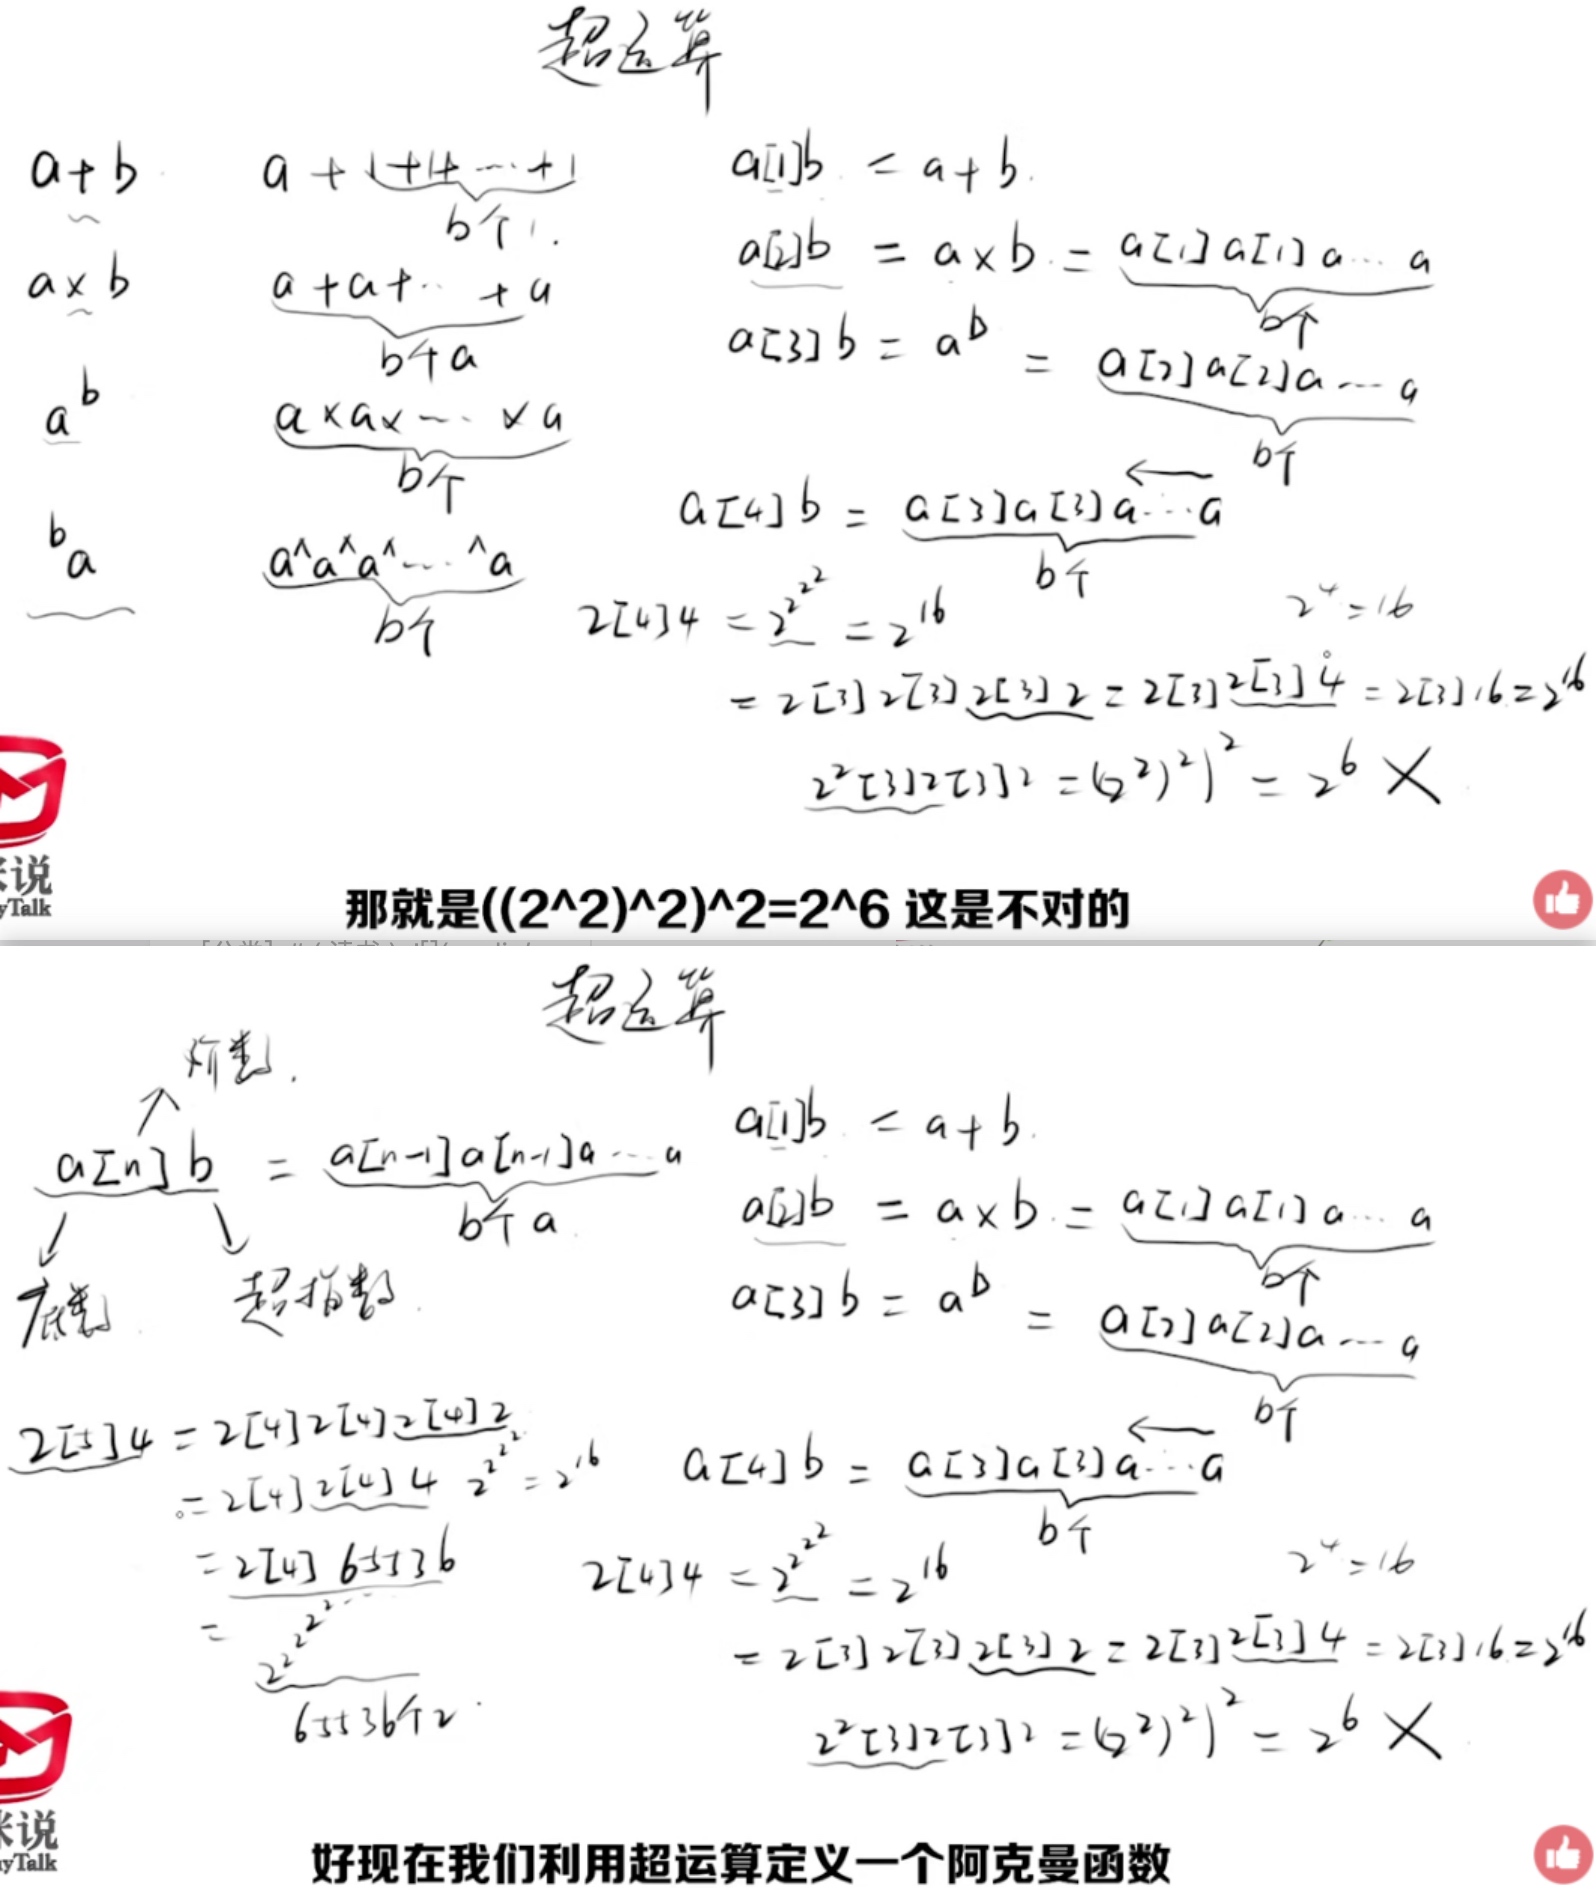 超运算
a+b a+1+1+…+1 a[1]b = a+b
b个1
a×b a+a+…+a a[2]b = a×b = a[1]a[1]a…a
b个a b个
a^b a×a×…×a a[3]b = a^b = a[2]a[2]a…a
b个 b个
^b a a^a^a^…^a a[4]b = a[3]a[3]a…a
b个 b个
2[4]4 = 2^2^2^2 = 2^16 2^4=16
= 2[3]2[3]2[3]2 = 2[3]2[3]4 = 2[3]16=2^16
2^2[3]2[3]2 = ((2^2)^2)^2 = 2^6 ×
米说
yTalk
那就是((2^2)^2)^2=2^6 这是不对的
超运算
阶数
a[n]b = a[n-1]a[n-1]a…a a[1]b = a+b
b个a
底数 超指数
a[2]b = a×b = a[1]a[1]a…a
b个
a[3]b = a^b = a[2]a[2]a…a
b个
2[5]4 = 2[4]2[4]2[4]2
= 2[4]2[4]4 2^2^2^2 = 2^16
= 2[4]65536
= 2^2^2^2^…
65536个2
a[4]b = a[3]a[3]a…a
b个
2[4]4 = 2^2^2^2 = 2^16 2^4=16
= 2[3]2[3]2[3]2 = 2[3]2[3]4 = 2[3]16=2^16
2^2[3]2[3]2 = ((2^2)^2)^2 = 2^6 ×
米说
yTalk
好现在我们利用超运算定义一个阿克曼函数